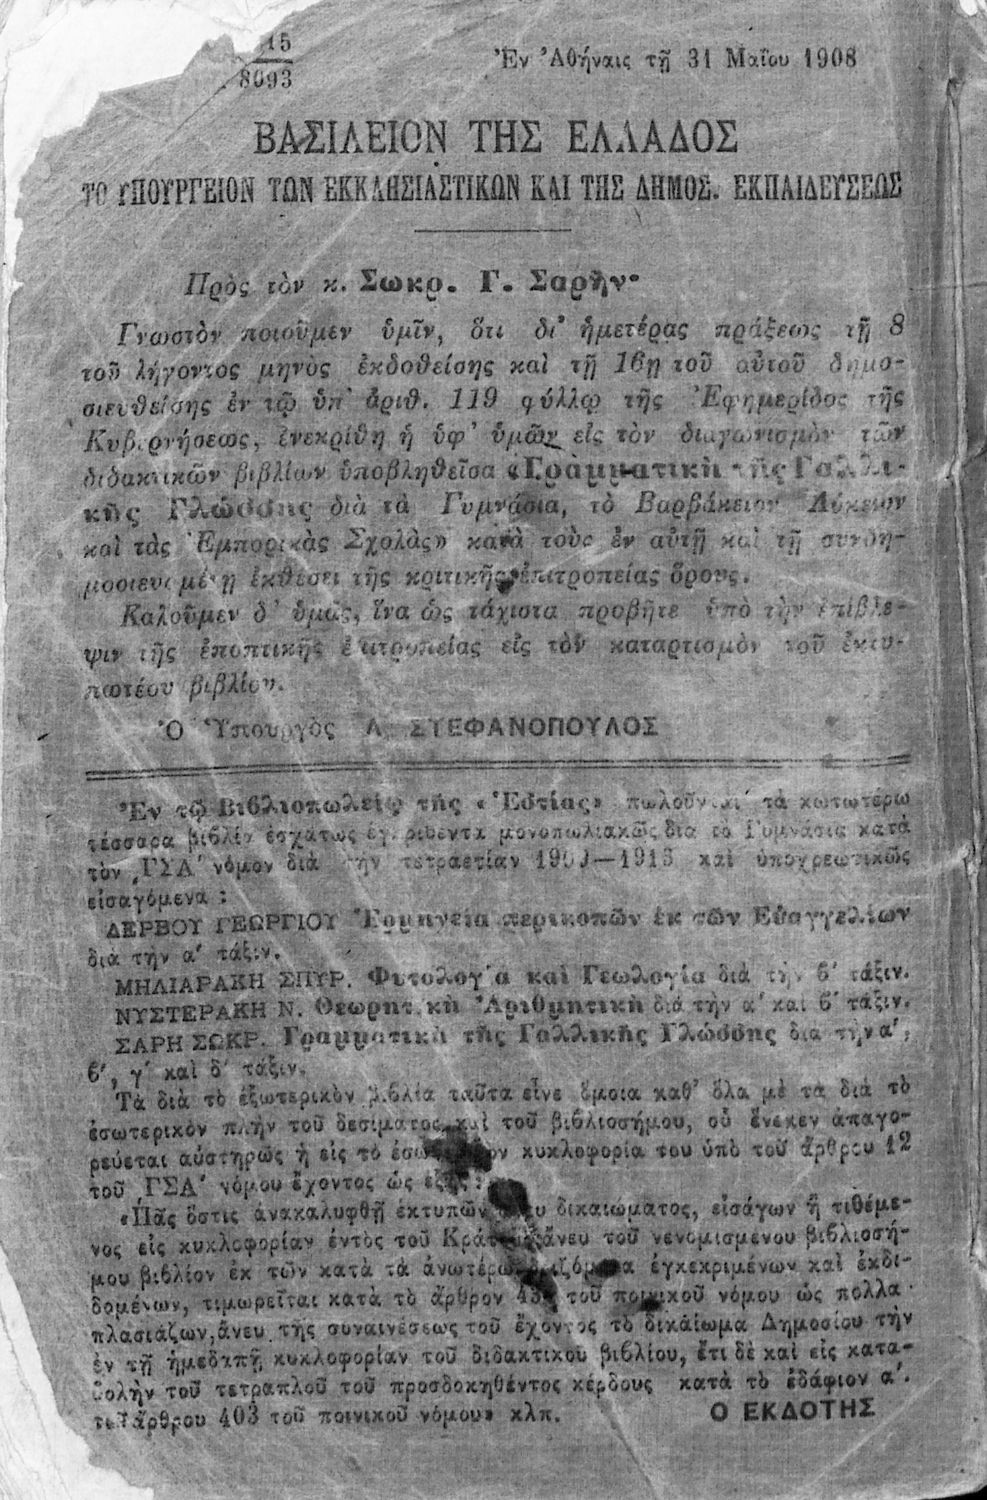 15
8093
Ἐν Ἀθήναις τῇ 31 Μαΐου 1908
ΒΑΣΙΛΕΙΟΝ ΤΗΣ ΕΛΛΑΔΟΣ
ΤΟ ΥΠΟΥΡΓΕΙΟΝ ΤΩΝ ΕΚΚΛΗΣΙΑΣΤΙΚΩΝ ΚΑΙ ΤΗΣ ΔΗΜΟΣ. ΕΚΠΑΙΔΕΥΣΕΩΣ
Πρὸς τὸν κ. Σωκρ. Γ. Σαρῆν·
Γνωστὸν ποιοῦμεν ὑμῖν, ὅτι δι' ἡμετέρας πράξεως τῇ 8
τοῦ λήγοντος μηνὸς ἐκδοθείσης καὶ τῇ 16ῃ τοῦ αὐτοῦ δημο-
σιευθείσης ἐν τῷ ὑπ' ἀριθ. 119 φύλλῳ τῆς Ἐφημερίδος τῆς
Κυβερνήσεως, ἐνεκρίθη ἡ ὑφ' ὑμῶν εἰς τὸν διαγωνισμὸν τῶν
διδακτικῶν βιβλίων ὑποβληθεῖσα «Γραμματικὴ τῆς Γαλλι-
κῆς Γλώσσης διὰ τὰ Γυμνάσια, τὸ Βαρβάκειον Λύκειον
καὶ τὰς Ἐμπορικὰς Σχολὰς» κατὰ τοὺς ἐν αὐτῇ καὶ τῇ συνδη-
μοσιευομένῃ ἐκθέσει τῆς κριτικῆς ἐπιτροπείας ὅρους.
Καλοῦμεν δ' ὑμᾶς, ἵνα ὡς τάχιστα προβῆτε ὑπὸ τὴν ἐπίβλε-
ψιν τῆς ἐποπτικῆς ἐπιτροπείας εἰς τὸν καταρτισμὸν τοῦ ἐκτυ-
πωτέου βιβλίου.
Ὁ Ὑπουργὸς Α. ΣΤΕΦΑΝΟΠΟΥΛΟΣ
Ἐν τῷ Βιβλιοπωλείῳ τῆς «Ἑστίας» πωλοῦνται τὰ κατωτέρω
τέσσαρα βιβλία ἐσχάτως ἐγκριθέντα μονοπωλιακῶς διὰ τὸ Γυμνάσια κατὰ
τὸν ͵ΓΣΑ' νόμον διὰ τὴν τετραετίαν 1909—1913 καὶ ὑποχρεωτικῶς
εἰσαγόμενα :
ΔΕΡΒΟΥ ΓΕΩΡΓΙΟΥ Ἑρμηνεία περικοπῶν ἐκ τῶν Εὐαγγελίων
διὰ τὴν α' τάξιν.
ΜΗΛΙΑΡΑΚΗ ΣΠΥΡ. Φυτολογία καὶ Γεωλογία διὰ τὴν β' τάξιν.
ΝΥΣΤΕΡΑΚΗ Ν. Θεωρητικὴ Ἀριθμητικὴ διὰ τὴν α' καὶ β' τάξιν.
ΣΑΡΗ ΣΩΚΡ. Γραμματικὴ τῆς Γαλλικῆς Γλώσσης διὰ τὴν α',
β', γ' καὶ δ' τάξιν.
Τὰ διὰ τὸ ἐξωτερικὸν βιβλία ταῦτα εἶνε ὅμοια καθ' ὅλα μὲ τὰ διὰ τὸ
ἐσωτερικὸν πλὴν τοῦ δεσίματος καὶ τοῦ βιβλιοσήμου, οὗ ἕνεκεν ἀπαγο-
ρεύεται αὐστηρῶς ἡ εἰς τὸ ἐσωτερικὸν κυκλοφορία του ὑπὸ τοῦ ἄρθρου 12
τοῦ ͵ΓΣΑ' νόμου ἔχοντος ὡς ἑξῆς :
«Πᾶς ὅστις ἀνακαλυφθῇ ἐκτυπῶν ἄνευ δικαιώματος, εἰσάγων ἢ τιθέμε-
νος εἰς κυκλοφορίαν ἐντὸς τοῦ Κράτους ἄνευ τοῦ νενομισμένου βιβλιοσή-
μου βιβλίον ἐκ τῶν κατὰ τὰ ἀνωτέρω ὁριζόμενα ἐγκεκριμένων καὶ ἐκδι-
δομένων, τιμωρεῖται κατὰ τὸ ἄρθρον τοῦ ποινικοῦ νόμου ὡς πολλα-
πλασιάζων, ἄνευ τῆς συναινέσεως τοῦ ἔχοντος τὸ δικαίωμα Δημοσίου τὴν
ἐν τῇ ἡμεδαπῇ κυκλοφορίαν τοῦ διδακτικοῦ βιβλίου, ἔτι δὲ καὶ εἰς κατα-
βολὴν τοῦ τετραπλοῦ τοῦ προσδοκηθέντος κέρδους κατὰ τὸ ἐδάφιον α'.
τοῦ ἄρθρου 403 τοῦ ποινικοῦ νόμου» κλπ.
Ο ΕΚΔΟΤΗΣ